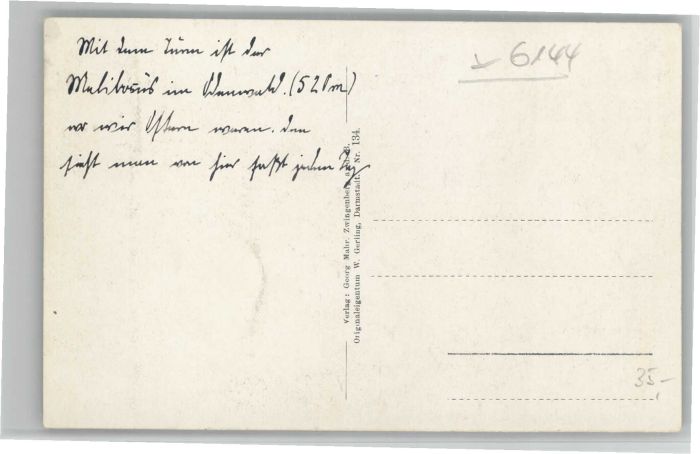 Mit dem Turm ist der
Melibocus im Odenwald. (520m)
wo wir Ostern waren. den
sieht man von hier fast jeden Tag
Verlag: Georg Mahr, Zwingenberg
Originaleigentum W. Gerling, Darmstadt. Nr. 134.
6144
35,-